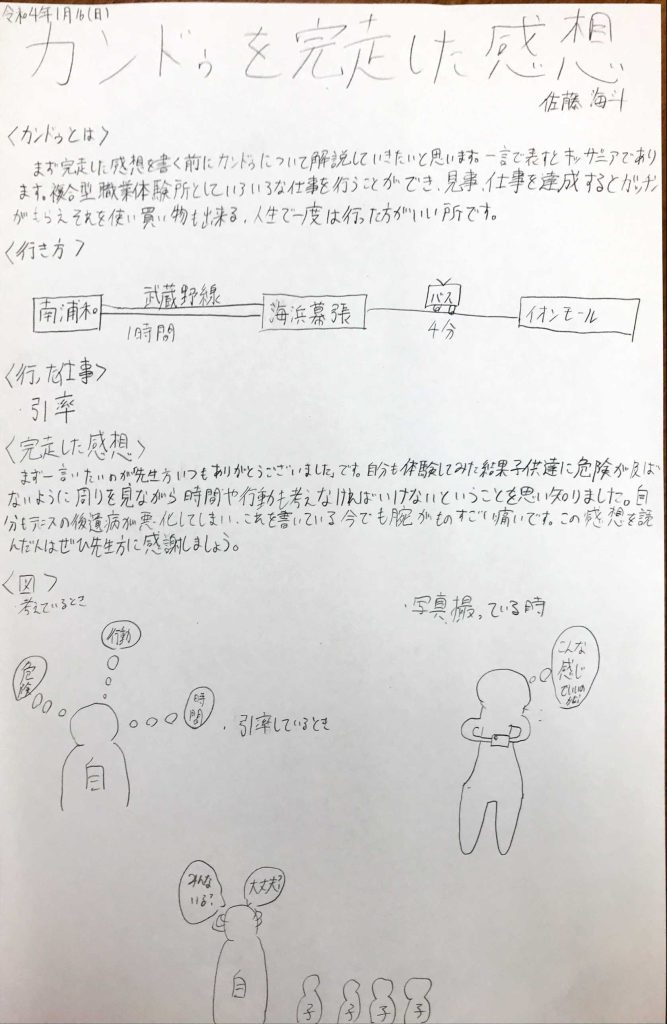 令和4年1月16(日)
カンドゥを完走した感想
佐藤 海斗
〈カンドゥとは〉
まず完走した感想を書く前にカンドゥについて解説していきたいと思います。一言で表すとキッザニアであり
ます。複合型職業体験所としていろいろな仕事を行うことができ、見事、仕事を達成するとカッチン
がもらえそれを使い買い物も出来る、人生で一度は行った方がいい所です。
〈行き方〉
南浦和 武蔵野線 1時間 海浜幕張 バス 4分 イオンモール
〈行った仕事〉
・引率
〈完走した感想〉
まず一言いたいのが「先生方いつもありがとうございました」です。自分も体験してみた結果子供達に危険が及ば
ないように周りを見ながら時間や行動も考えなければいけないということを思い知りました。自
分もテニスの後遺病が悪化してしまい、これを書いている今でも腕がものすごい痛いです。この感想を読
んだ人はぜひ先生方に感謝しましょう。
〈図〉
・考えているとき
行動
危険
時間
自
・写真撮っている時
こんな
感じ
でいいの
かな?
・引率しているとき
みんな
いる?
大丈夫?
自
子 子 子 子